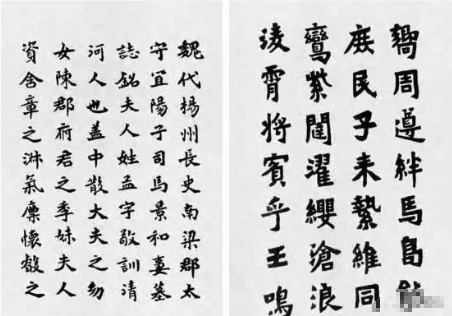 魏代揚州長史南梁郡太
守宜陽子司馬景和妻墓
誌銘夫人姓孟字敬訓清
河人也蓋中散大夫之幼
女陳郡府君之季妹夫人
資含章之淋氣廪懷叡之
周遵絆馬島
庶民子来縶維同
鸞紫閨濯纓滄浪
淩霄將賓乎王鳴